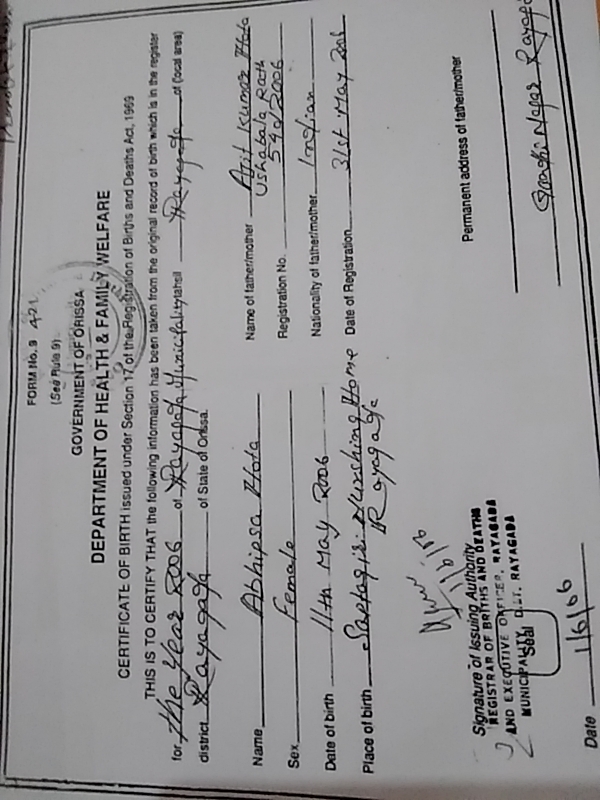 FORM No. 9 421
(See Rule 9)
GOVERNMENT OF ORISSA
DEPARTMENT OF HEALTH & FAMILY WELFARE
CERTIFICATE OF BIRTH issued under Section 17 of the Registration of Births and Deaths Act, 1969
THIS IS TO CERTIFY THAT the following information has been taken from the original record of birth which is in the register
for the year 2006 of Rayagada Municipality tahsil Rayagada of (local area)
district Rayagada of State of Orissa.
Name Abhipsa Hota
Sex Female
Date of birth 11th May 2006
Place of birth Saptagiri Nurshing Home
Rayagada
Name of father/mother Ajit Kumar Hota
Ushabala Rath
Registration No. 540/2006
Nationality of father/mother Indian
Date of Registration 31st May 2006
Permanent address of father/mother
Nagar
Signature of Issuing Authority
REGISTRAR OF BRITHS AND DEATHS
AND EXECUTIVE OFFICER, RAYAGADA
MUNICIPALITY DIST. RAYAGADA
Seal
Date 1/6/06